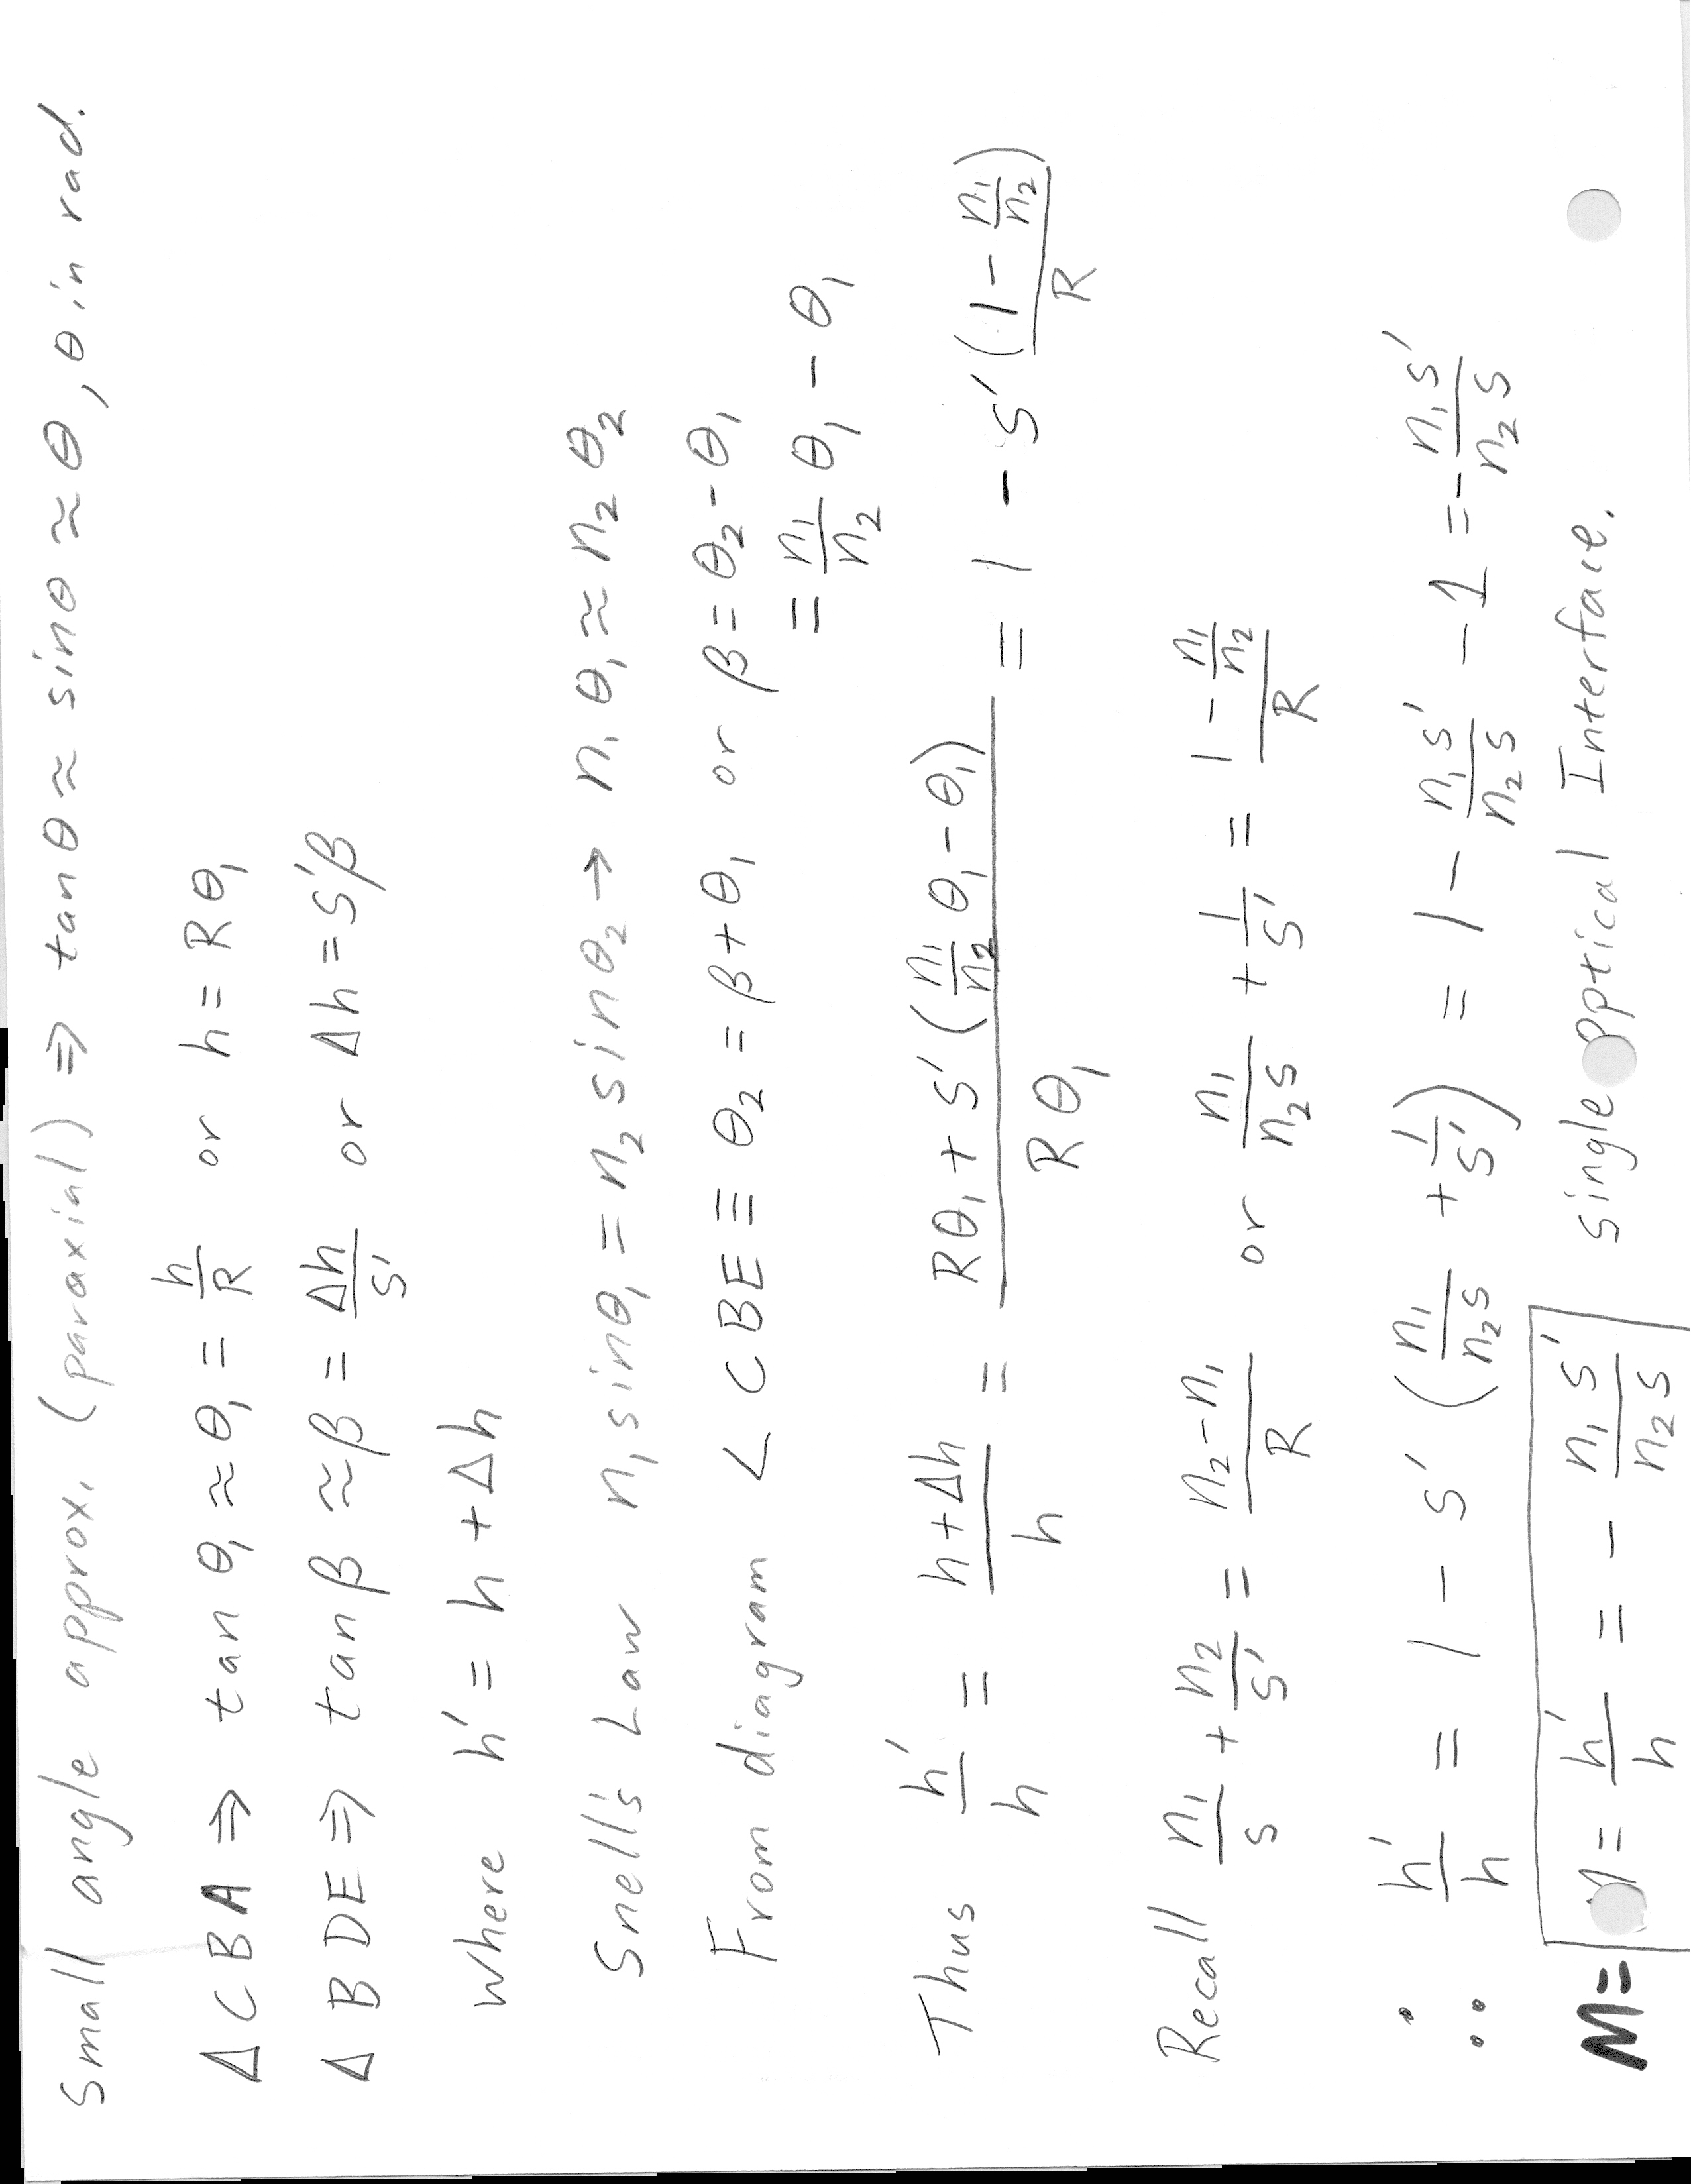 Small angle approx. (paraxial) ⇒ tanθ ≈ sinθ ≈ θ, θ in rad.
Δ CBA ⇒ tan θ₁ ≈ θ₁ = h/R or h = Rθ₁
Δ BDE ⇒ tan β ≈ β = Δh/s' or Δh = s'β
where h' = h + Δh
Snell's Law n₁ sinθ₁ = n₂ sinθ₂ → n₁ θ₁ ≈ n₂ θ₂
From diagram ∠ CBE ≡ θ₂ = β + θ₁ or β = θ₂ - θ₁
= n₁/n₂ θ₁ - θ₁
Thus h'/h = (h + Δh)/h = (Rθ₁ + s' (n₁/n₂ θ₁ - θ₁))/(Rθ₁) = 1 - s' (1 - n₁/n₂)/R
Recall n₁/s + n₂/s' = (n₂ - n₁)/R or n₁/(n₂s) + 1/s' = (1 - n₁/n₂)/R
∴ h'/h = 1 - s' (n₁/(n₂s) + 1/s') = 1 - n₁s'/(n₂s) - 1 = - n₁s'/(n₂s)
M = M = h'/h = - n₁s'/(n₂s) Single Optical Interface.